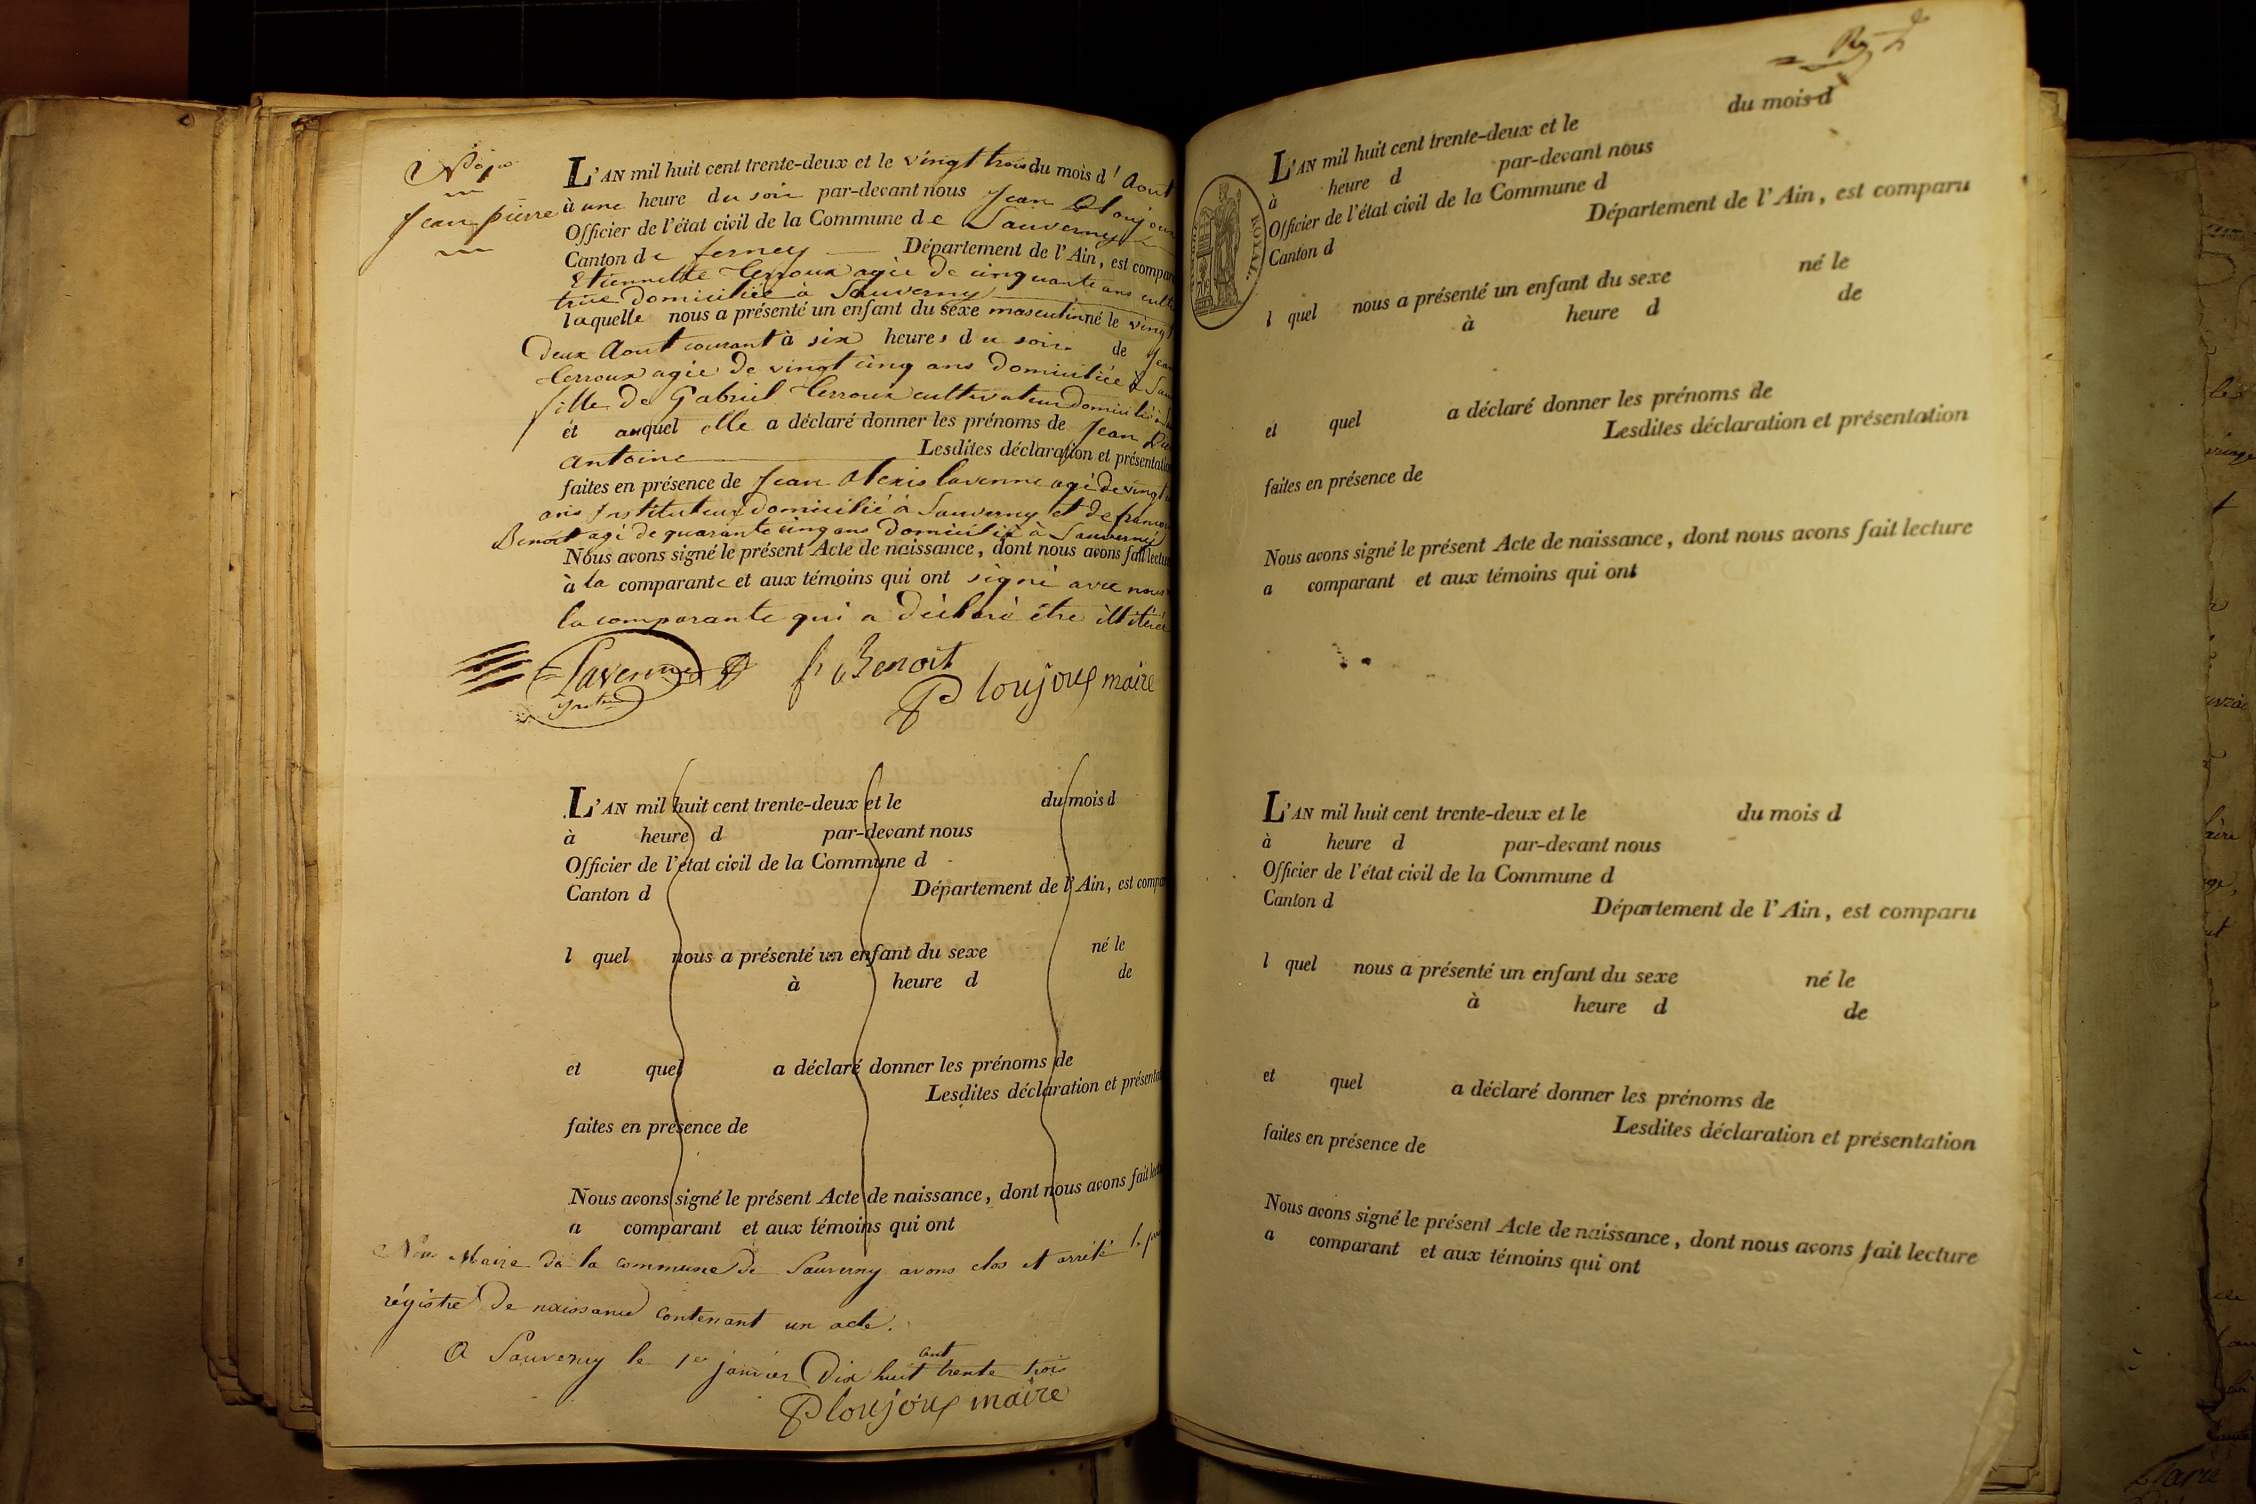 Jean pierre
L'AN mil huit cent trente-deux et le vingt trois du mois d'Aout
à une heure du soir par-devant nous Jean
Officier de l'état civil de la Commune de Sauverny
Canton de ferney Département de l'Ain, est compar
Etiennette agée de cinquante ans
domiciliée à Sauverny
laquelle nous a présenté un enfant du sexe masculin né le vingt
deux Aout courant à six heures du soir de
agée de vingt cinq ans Domiciliée à
fille de Gabriel cultivateur domicilié
et auquel elle a déclaré donner les prénoms de Jean
antoine Lesdites déclaration et présentation
faites en présence de Jean Alexis Lavenne agé de vingt
ans Instituteur domicilié à Sauverny et de
Benoit agé de quarante cinq ans Domicilié à Sauverny
Nous avons signé le présent Acte de naissance, dont nous avons fait lectu
à la comparante et aux témoins qui ont signé avec nous
la comparante qui a déclaré être
Lavenne
Benoit
Ploujoux maire
L'AN mil huit cent trente-deux et le du mois d
à heure d par-devant nous
Officier de l'état civil de la Commune d
Canton d Département de l'Ain, est compar
l quel nous a présenté un enfant du sexe né le
à heure d de
et quel a déclaré donner les prénoms de
Lesdites déclaration et présenta
faites en présence de
Nous avons signé le présent Acte de naissance, dont nous avons fait
a comparant et aux témoins qui ont
Nous Maire de la commune de Sauverny avons clos et arrêté le
régistre de naissance contenant un acte.
A Sauverny le 1er janvier Dix huit cent trente trois
Ploujoux maire
L'AN mil huit cent trente-deux et le du mois d
à heure d par-devant nous
Officier de l'état civil de la Commune d
Canton d Département de l'Ain, est comparu
l quel nous a présenté un enfant du sexe né le
à heure d de
et quel a déclaré donner les prénoms de
Lesdites déclaration et présentation
faites en présence de
Nous avons signé le présent Acte de naissance, dont nous avons fait lecture
a comparant et aux témoins qui ont
ROYAL.
L'AN mil huit cent trente-deux et le du mois d
à heure d par-devant nous
Officier de l'état civil de la Commune d
Canton d Département de l'Ain, est comparu
l quel nous a présenté un enfant du sexe né le
à heure d de
et quel a déclaré donner les prénoms de
Lesdites déclaration et présentation
faites en présence de
Nous avons signé le présent Acte de naissance, dont nous avons fait lecture
a comparant et aux témoins qui ont